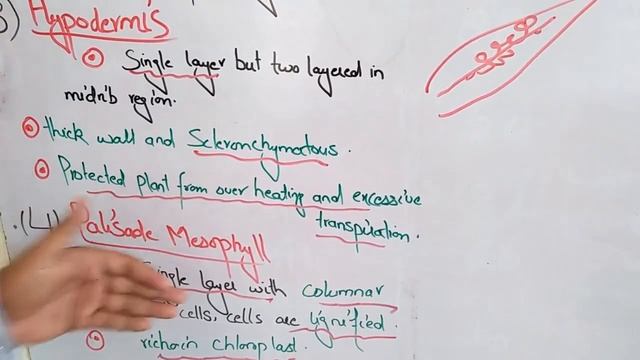 3) Hypodermis
Single layer but two layered in
midrib region.
thick wall and Sclerenchymatous.
Protected plant from over heating and excessive
transpiration.
(4) Palisade Mesophyll
Single layer with columnar
cells, cells are lignified.
rich in chloroplast.